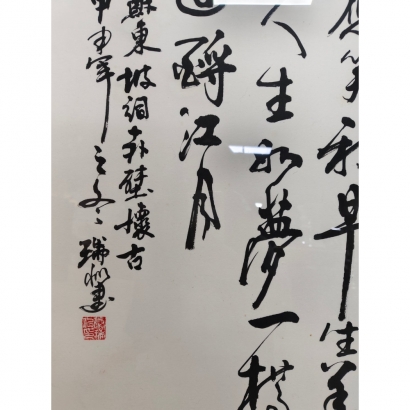 笑我早生華
人生如夢一樽
還酹江月
蘇東坡詞赤壁懷古
甲申年之冬 瑞書